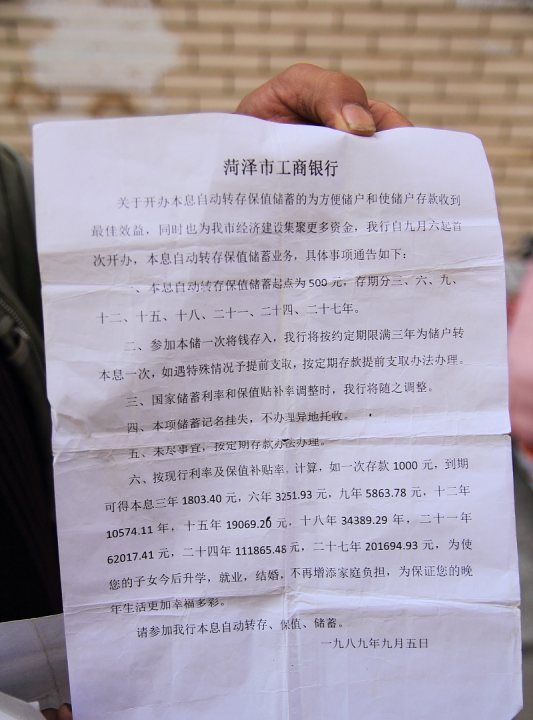 菏泽市工商银行
关于开办本息自动转存保值储蓄的为方便储户和使储户存款收到
最佳效益，同时也为我市经济建设集聚更多资金，我行自九月六起首
次开办，本息自动转存保值储蓄业务，具体事项通告如下：
一、本息自动转存保值储蓄起点为500元，存期分三、六、九、
十二、十五、十八、二十一、二十四、二十七年。
二、参加本储一次将钱存入，我行将按约定期限满三年为储户转
本息一次，如遇特殊情况予提前支取，按定期存款提前支取办法办理。
三、国家储蓄利率和保值贴补率调整时，我行将随之调整。
四、本项储蓄记名挂失，不办理异地托收。
五、未尽事宜，按定期存款办法办理。
六、按现行利率及保值补贴率。计算，如一次存款1000元，到期
可得本息三年1803.40元，六年3251.93元，九年5863.78元，十二年
10574.11年，十五年19069.20元，十八年34389.29年，二十一年
62017.41元，二十四年111865.48元，二十七年201694.93元，为使
您的子女今后升学，就业，结婚，不再增添家庭负担，为保证您的晚
年生活更加幸福多彩。
请参加我行本息自动转存、保值、储蓄。
一九八九年九月五日